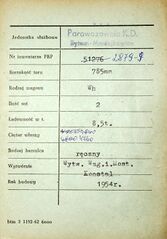 Jednostka służbowa Parowozownia K.D.
Nr inwentarza PKP 51276 2879-S
Szerokość toru 785mm
Rodzaj wagonu Wh
Ilość osi 2
Ładowność w t. 8,5t.
Ciężar własny
Rodzaj hamulca ręczny
Wytwórnia Wytw. Wag.i.Most.
Konstal
Rok budowy 1954r.